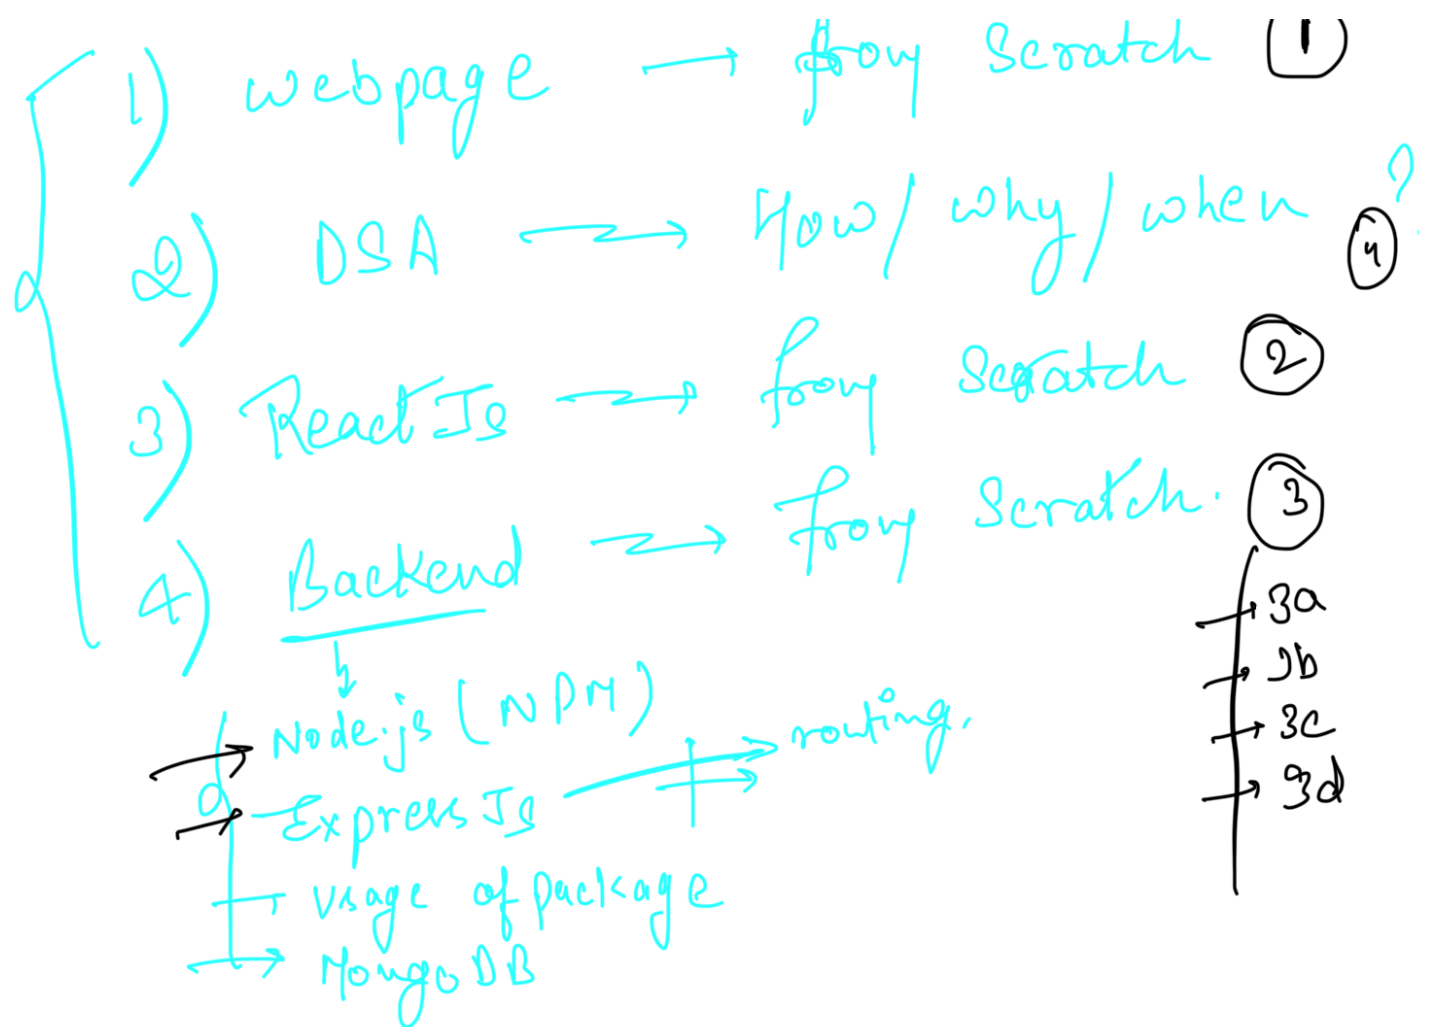 1) webpage → from Scratch 1
2) DSA → How / why / when ? 4
3) React Js → from Scratch 2
4) Backend → from Scratch. 3
3a
3b
3c
3d
Node.js (NPM)
Express Js → routing.
Usage of package
MongoDB